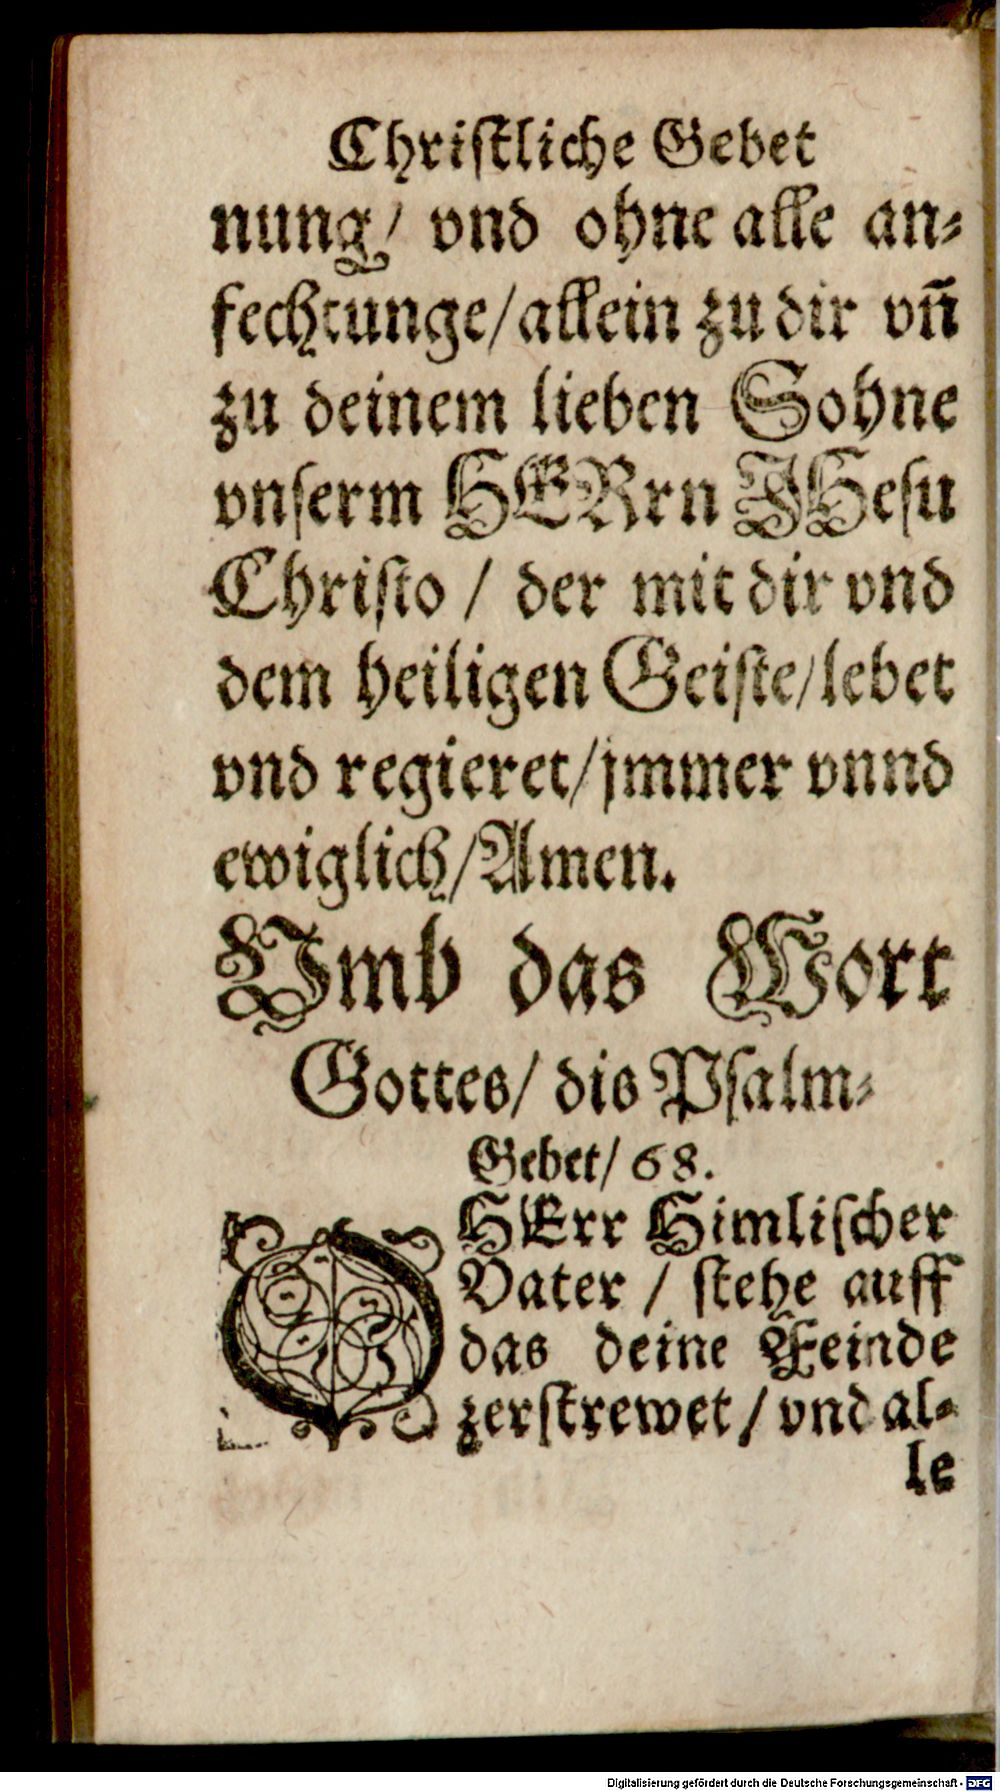 Chriſtliche Gebet
nung/ vnd ohne alle an⸗
fechtunge/allein zu dir vñ
zu deinem lieben Sohne
vnſerm HERrn JHeſu
Chriſto / der mit dir vnd
dem heiligen Geiſte/lebet
vnd regieret/jmmer vnnd
ewiglich/Amen.
Vmb das Wort
Gottes/ dis Pſalm⸗
Gebet/ 68.
O HErr Himliſcher
Vater / ſtehe auff
das deine Feinde
zerſtrewet / vnd al⸗
le
Digitalisierung gefördert durch die Deutsche Forschungsgemeinschaft - DFG